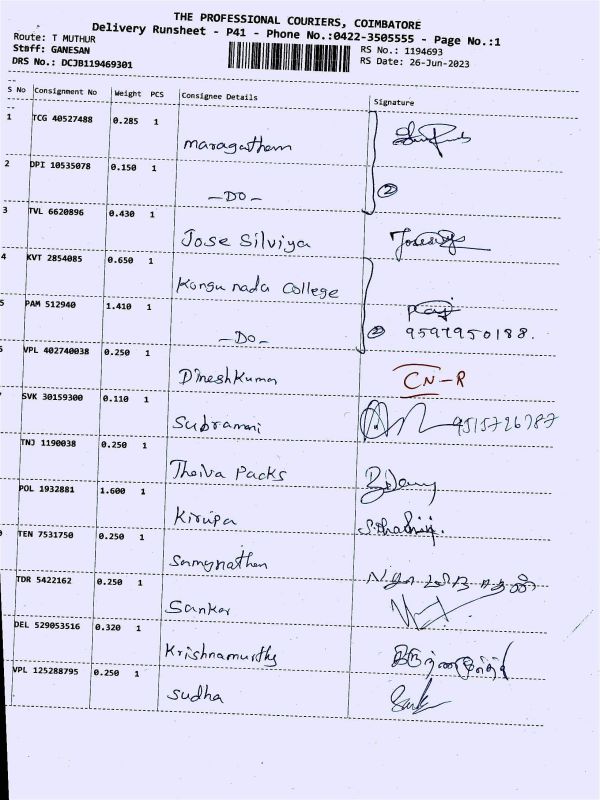 THE PROFESSIONAL COURIERS, COIMBATORE
Delivery Runsheet - P41 - Phone No.:0422-3505555 - Page No.:1
Route: T MUTHUR
RS No.: 1194693
Staff: GANESAN
RS Date: 26-Jun-2023
DRS No.: DCJB119469301
S No Consignment No Weight PCS Consignee Details Signature
1 TCG 40527488 0.285 1 maragatham
2 DPI 10535078 0.150 1 -DO- 2
3 TVL 6620896 0.430 1 Jose Silviya
4 KVT 2854085 0.650 1 Kongu nadu College
5 PAM 512940 1.410 1 -DO- 2 9597950188.
VPL 402740038 0.250 1 Dineshkumar CN-R
SVK 30159300 0.110 1 Subramani 9515726787
TNJ 1190038 0.250 1 Theiva Packs
POL 1932881 1.600 1 Kirupa
TEN 7531750 0.250 1 Samynathan
TDR 5422162 0.250 1 Sankar
DEL 529053516 0.320 1 Krishnamurthy
VPL 125288795 0.250 1 Sudha